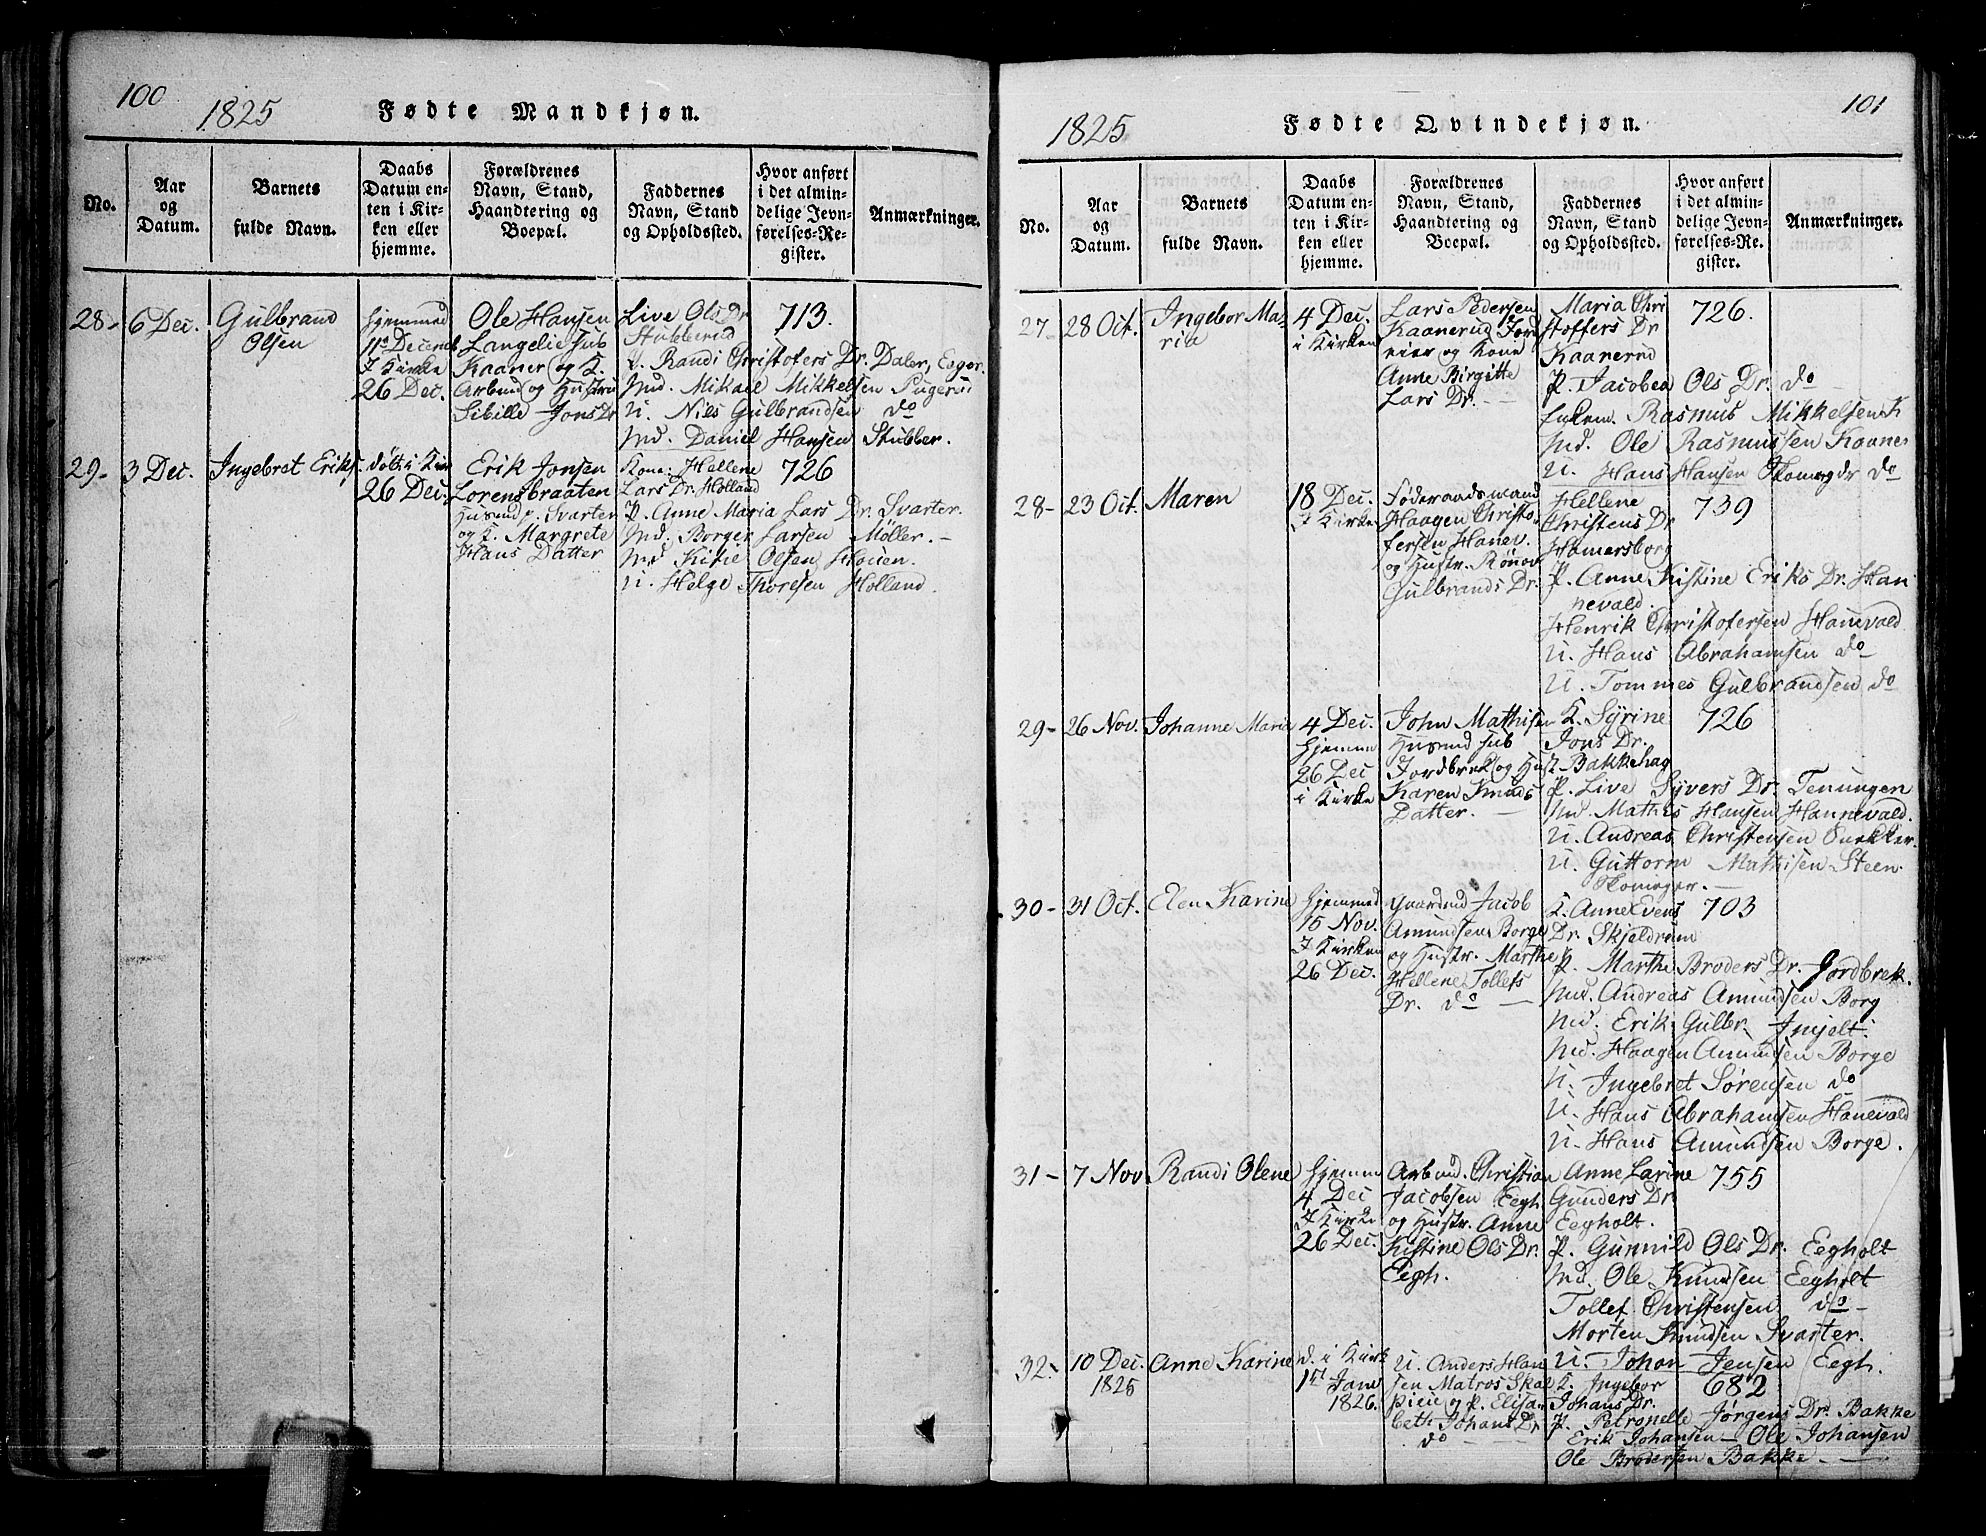 100
1825
Fødte Mandkjøn.
No.
Aar
og
Datum.
Barnets
fulde Navn.
Daabs
Datum en-
ten i Kir-
ken eller
hjemme.
Forældrenes
Navn, Stand,
Haandtering og
Boepæl.
Faddernes
Navn, Stand
og Opholdssted.
Hvor anført
i det almin-
delige Jevn-
førelses-Re-
gister.
Anmærkninger.
28- 6 Dec.
Gulbrand
Olsen
hjemmed
11te Decemb
I Kirke
26 Dec.
Ole Hansen
Langelie sub
Kaaner og K.
Arbmd og Hustrue
Sibille Jons Dr
Live Ols Dr
Stubberud
713.
P. Randi Christofers Dr. Daler, Eger.
Md. Mikael Mikkelsen Pugerud
U. Niels Gulbrandsen do
Md. Daniel Hansen Stubber.
29- 3 Dec.
Ingebret Eriks.
døbt i Kir
26 Dec.
Erik Jonsen
Lorensbraaten
Husmd p. Svarter
og K. Margrete
Hans Datter
Kone: Hellene
Lars Dr Holland
726
P. Anne Maria Lars Dr. Svarter.
Md. Borger Larsen Møller.-
Md Kitie Olsen Houen.
U. Helge Thoresen Holland.
101
1825
Fødte Qvindekjøn.
No.
Aar
og
Datum.
Barnets
fulde Navn.
Daabs
Datum en-
ten i Kir-
ken eller
hjemme.
Forældrenes
Navn, Stand,
Haandtering og
Boepæl.
Faddernes
Navn, Stand
og Opholdssted.
Hvor anført
i det almin-
delige Jevn-
førelses-Re-
gister.
Anmærkninger.
27- 28 Oct.
Ingebor Ma-
ria
4 Dec.
i Kirken
Lars Pedersen
Kaanerud
og Kone
Anne Birgitte
Lars Dr.
Maria Chri
stoffers Dr
Kaanerud
726.
P. Jacobea Ols Dr. do
Rasmus Mikkelsen K
Md. Ole Rasmussen Kaaner
U. Hans Hansen do
28- 23 Oct.
Maren
18 Dec.
I Kirke
Føderaadsmand
Haagen Christo-
fersen Hanev.
og Hustr. Rønov
Gulbrands Dr.
Hellene
Christens Dr
Hamersborg
739
P. Anne Kistine Eriks Dr. Han
nevald.
Henrik Christofersen Hanevald
U. Hans Abrahamsen do
U. Tommes Gulbrandsen do
29- 26 Nov.
Johanne Maria
4 Dec.
hjemme
26 Dec
i Kirke
John Mathisen
Husmd sub
Jordbrek og Hust-
Karen Knuds
Datter.
K. Syrine
Jons Dr.
Bakkehag
726
P. Live Syvers Dr. Tenungen
Md. Mathis Hansen Hannevald.
U. Andreas Christensen
U. Guttorm Mathisen Steen
30- 31 Oct.
Elen Karine
hjemmed
15 Nov.
I Kirken
26 Dec.
Gaardmd Jacob
Amundsen Borge
og Hustr. Marthe
Hellene Tollefs
Dr. do
K. Anne Evens
Dr. Skjeldrem
703
P. Marthe Broders Dr. Jordbrek.
Md. Andreas Amundsen Borg
Md. Erik Gulbr.
Md. Haagen Amundsen Borge
U. Ingebret Sørensen do
U. Hans Abrahamsen Hanevald
U. Hans Amundsen Borge.
31- 7 Nov
Randi Olene
hjemme
4 Dec
I Kirke
26 Dec.
Arbmd. Christian
Jacobsen Eegh
og Hustr. Anne
Kistine Ols Dr.
Eegh.
Anne Larine
Gunders Dr
Eegholt.
755
P. Gunnild Ols Dr. Eegholt
Md. Ole Knudsen Eegholt
Tollef Christensen do-
Morten Knudsen Svarter.
U. Johan Jensen Eegh.
32.- 10 Dec.
1825
Anne Karine
d. i Kirk
1st Janu
1826.
U. Anders Han
sen Matros Skal
pien og P. Elisa-
beth Johans Dr
do
K. Ingebor
Johans Dr.
682
P. Petronelle Jørgens Dr. Bakke
Erik Johansen - Ole Johansen
Ole Brodersen Bakke